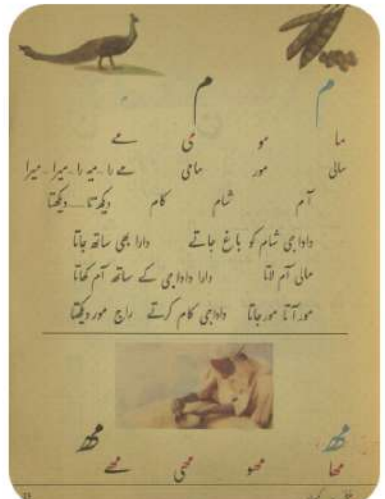 م م
ما مو می مے
مالی مور مامی مے را۔۔میرا۔۔میرا
آم شام کام دیکھ تا۔۔۔۔دیکھتا
داداجی شام کو باغ جاتے دارا بھی ساتھ جاتا
مالی آم لاتا دارا داداجی کے ساتھ آم کھاتا
مور آتا مور جاتا داداجی کام کرتے راج مور دیکھتا
مھ مھ
مھا مھو مھی مھے